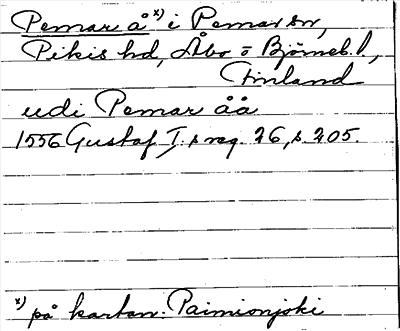 Pemar å x) i Pemar sn,
Pikis hd, Åbo o Björneb. l.,
Finland
udi Pemar åå
1556 Gustaf I:s reg. 26, s. 205.
x) på kartan: Paimionjoki